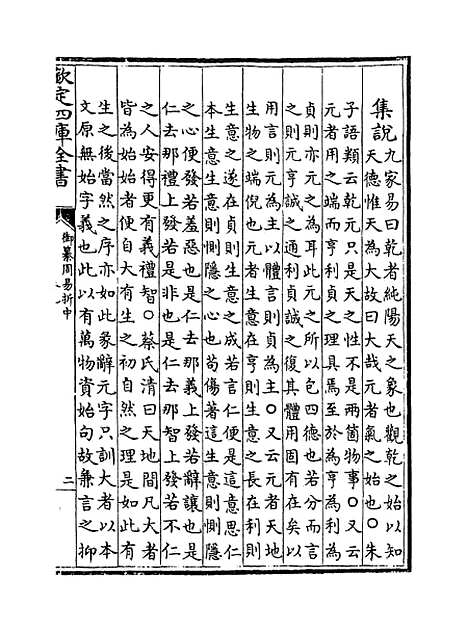 集說九家易曰乾者純陽天之象也觀乾之始以知
天德惟天為大故曰大哉元者氣之始也〇朱
子語類云乾元只是天之性不是兩箇物事〇又云
元者用之端而亨利貞之理具焉至於為亨為利為
貞則亦元之為耳此元之所以包四德也若分而言
之則元亨誠之通利貞誠之復其體用固有在矣以
用言則元為主以體言則貞為主〇又云元者天地
生物之端倪也元者生意在亨則生意之長在利則
生意之遂在貞則生意之成若言仁便是這意思仁
本生意生意則惻隱之心也苟傷著這生意則惻隱
之心便發若羞惡也是仁去那義上發若辭讓也是
仁去那禮上發若是非也是仁去那智上發若不仁
之人安得更有義禮智〇蔡氏清曰天地間凡大者
皆為始始者便自大有生之初自然之理是如此有
生之後當然之序亦如此彖辭元字只訓大者以本
文原無始字義也此以有萬物資始句故兼言之抑
欽定四庫全書
御纂周易折中
二